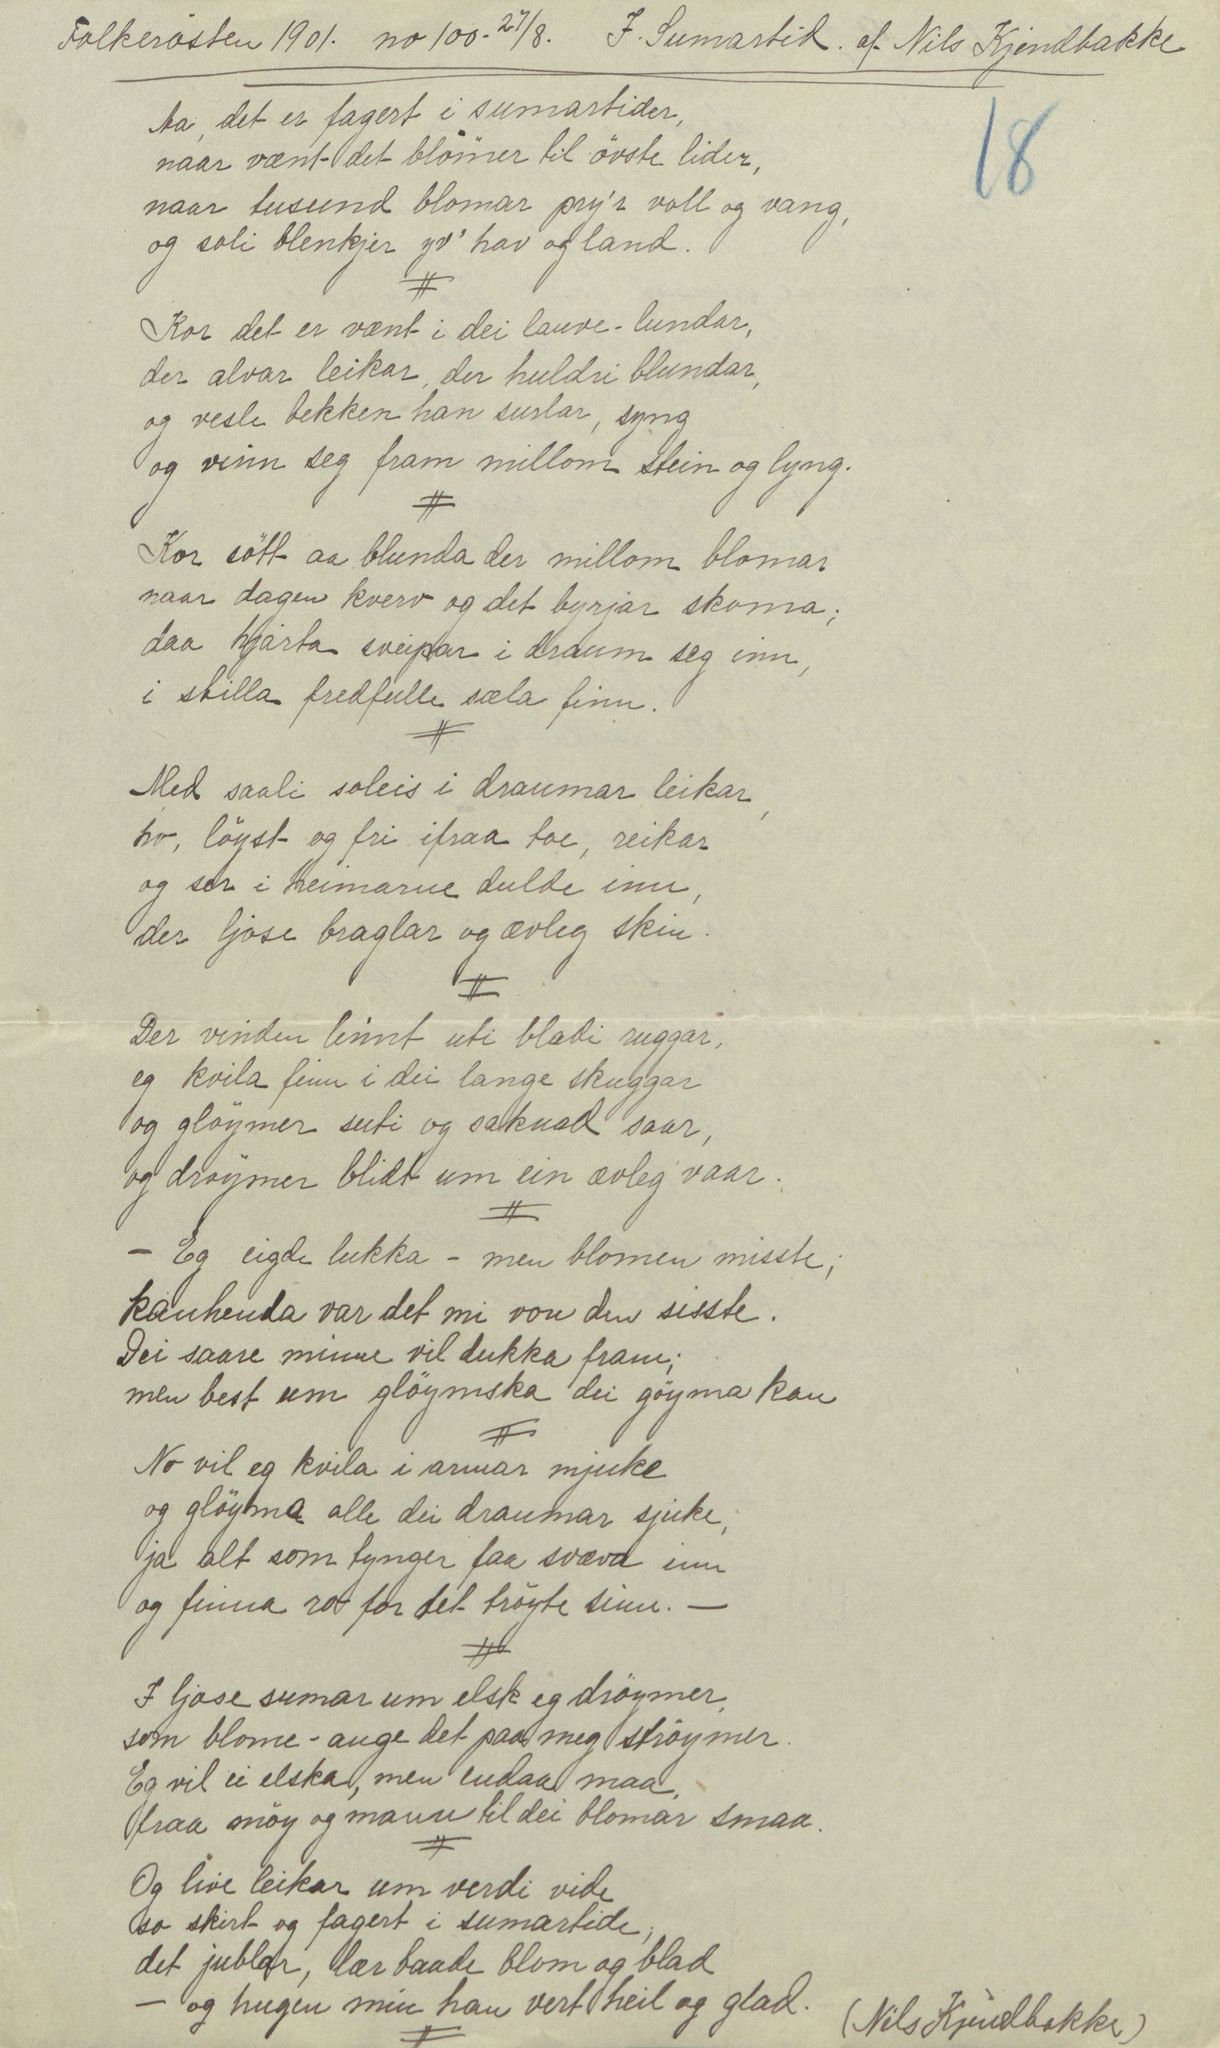 Folkerösten 1901. no 100 - 27/8. I Sumartid. af Nils Kjendbakke
18
Aa, det er fagert i sumartider,
naar vænt det blömer til övste lider,
naar tusund blomar pry'r voll og vang,
og soli blenkjer yv' hav og land.
Kor det er vænt i dei lauve-lundar,
der alvar leikar, der huldri blundar,
og vesle bekken han surlar, syng
og vinn seg fram millom stein og lyng.
Kor sött aa blunda der millom blomar
naar dagen kverv og det byrjar skoma;
daa hjarta sveipar i draum seg inn,
i stilla fredfulle sæla finn.
Med saali soleis i draumar leikar,
ho, löyst og fri ifraa toe, reikar
og ser i heimarne dulde inn,
der ljose braglar og ævleg skin.
Der vinden linnt uti bladi ruggar,
eg kvila finn i dei lange skuggar
og glöymer suti og saknad saar,
og dröymer blidt um ein ævleg vaar.
- Eg eigde lukka - men blomen misste;
kanhenda var det mi von den sisste.
Dei saare minne vil dukka fram;
men best um glöymska dei göyma kan
No vil eg kvila i armar mjuke
og glöyma alle dei draumar sjuke,
ja alt som tynger faa sværa inn
og finna ro for det tröyte sinn. -
I ljose sumar um elsk eg dröymer,
som blome-auge det paa meg ströymer.
Eg vil ei elska, men endaa maa,
fraa möy og mann til dei blomar smaa.
Og live leikar um verdi vide
so skirt og fagert i sumartide;
det jublar, lær baade blom og blad
- og hugen min han vert heil og glad.
(Nils Kjendbakke)